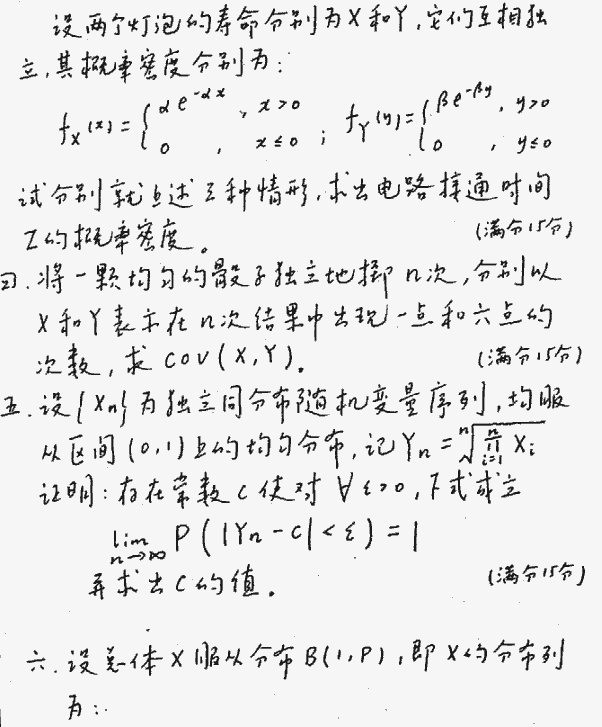 设两个灯泡的寿命分别为X和Y,它们互相独
立,其概率密度分别为:
f_X(x)={αe^{-αx}, x>0; 0, x≤0 ; f_Y(y)={βe^{-βy}, y>0; 0, y≤0
试分别就上述三种情形,求出电路接通时间
Z的概率密度。 (满分15分)
四.将一颗均匀的骰子独立地掷n次,分别以
X和Y表示在n次结果中出现一点和六点的
次数,求COV(X,Y)。 (满分15分)
五.设{Xn}为独立同分布随机变量序列,均服
从区间(0,1)上的均匀分布,记Yn=ⁿ√(∏_{i=1}^{n} Xi)
证明:存在常数C使对∀ε>0,下式成立
lim_{n→∞} P(|Yn-C|<ε)=1
并求出C的值。 (满分15分)
六.设总体X服从分布B(1,P),即X的分布列
为: